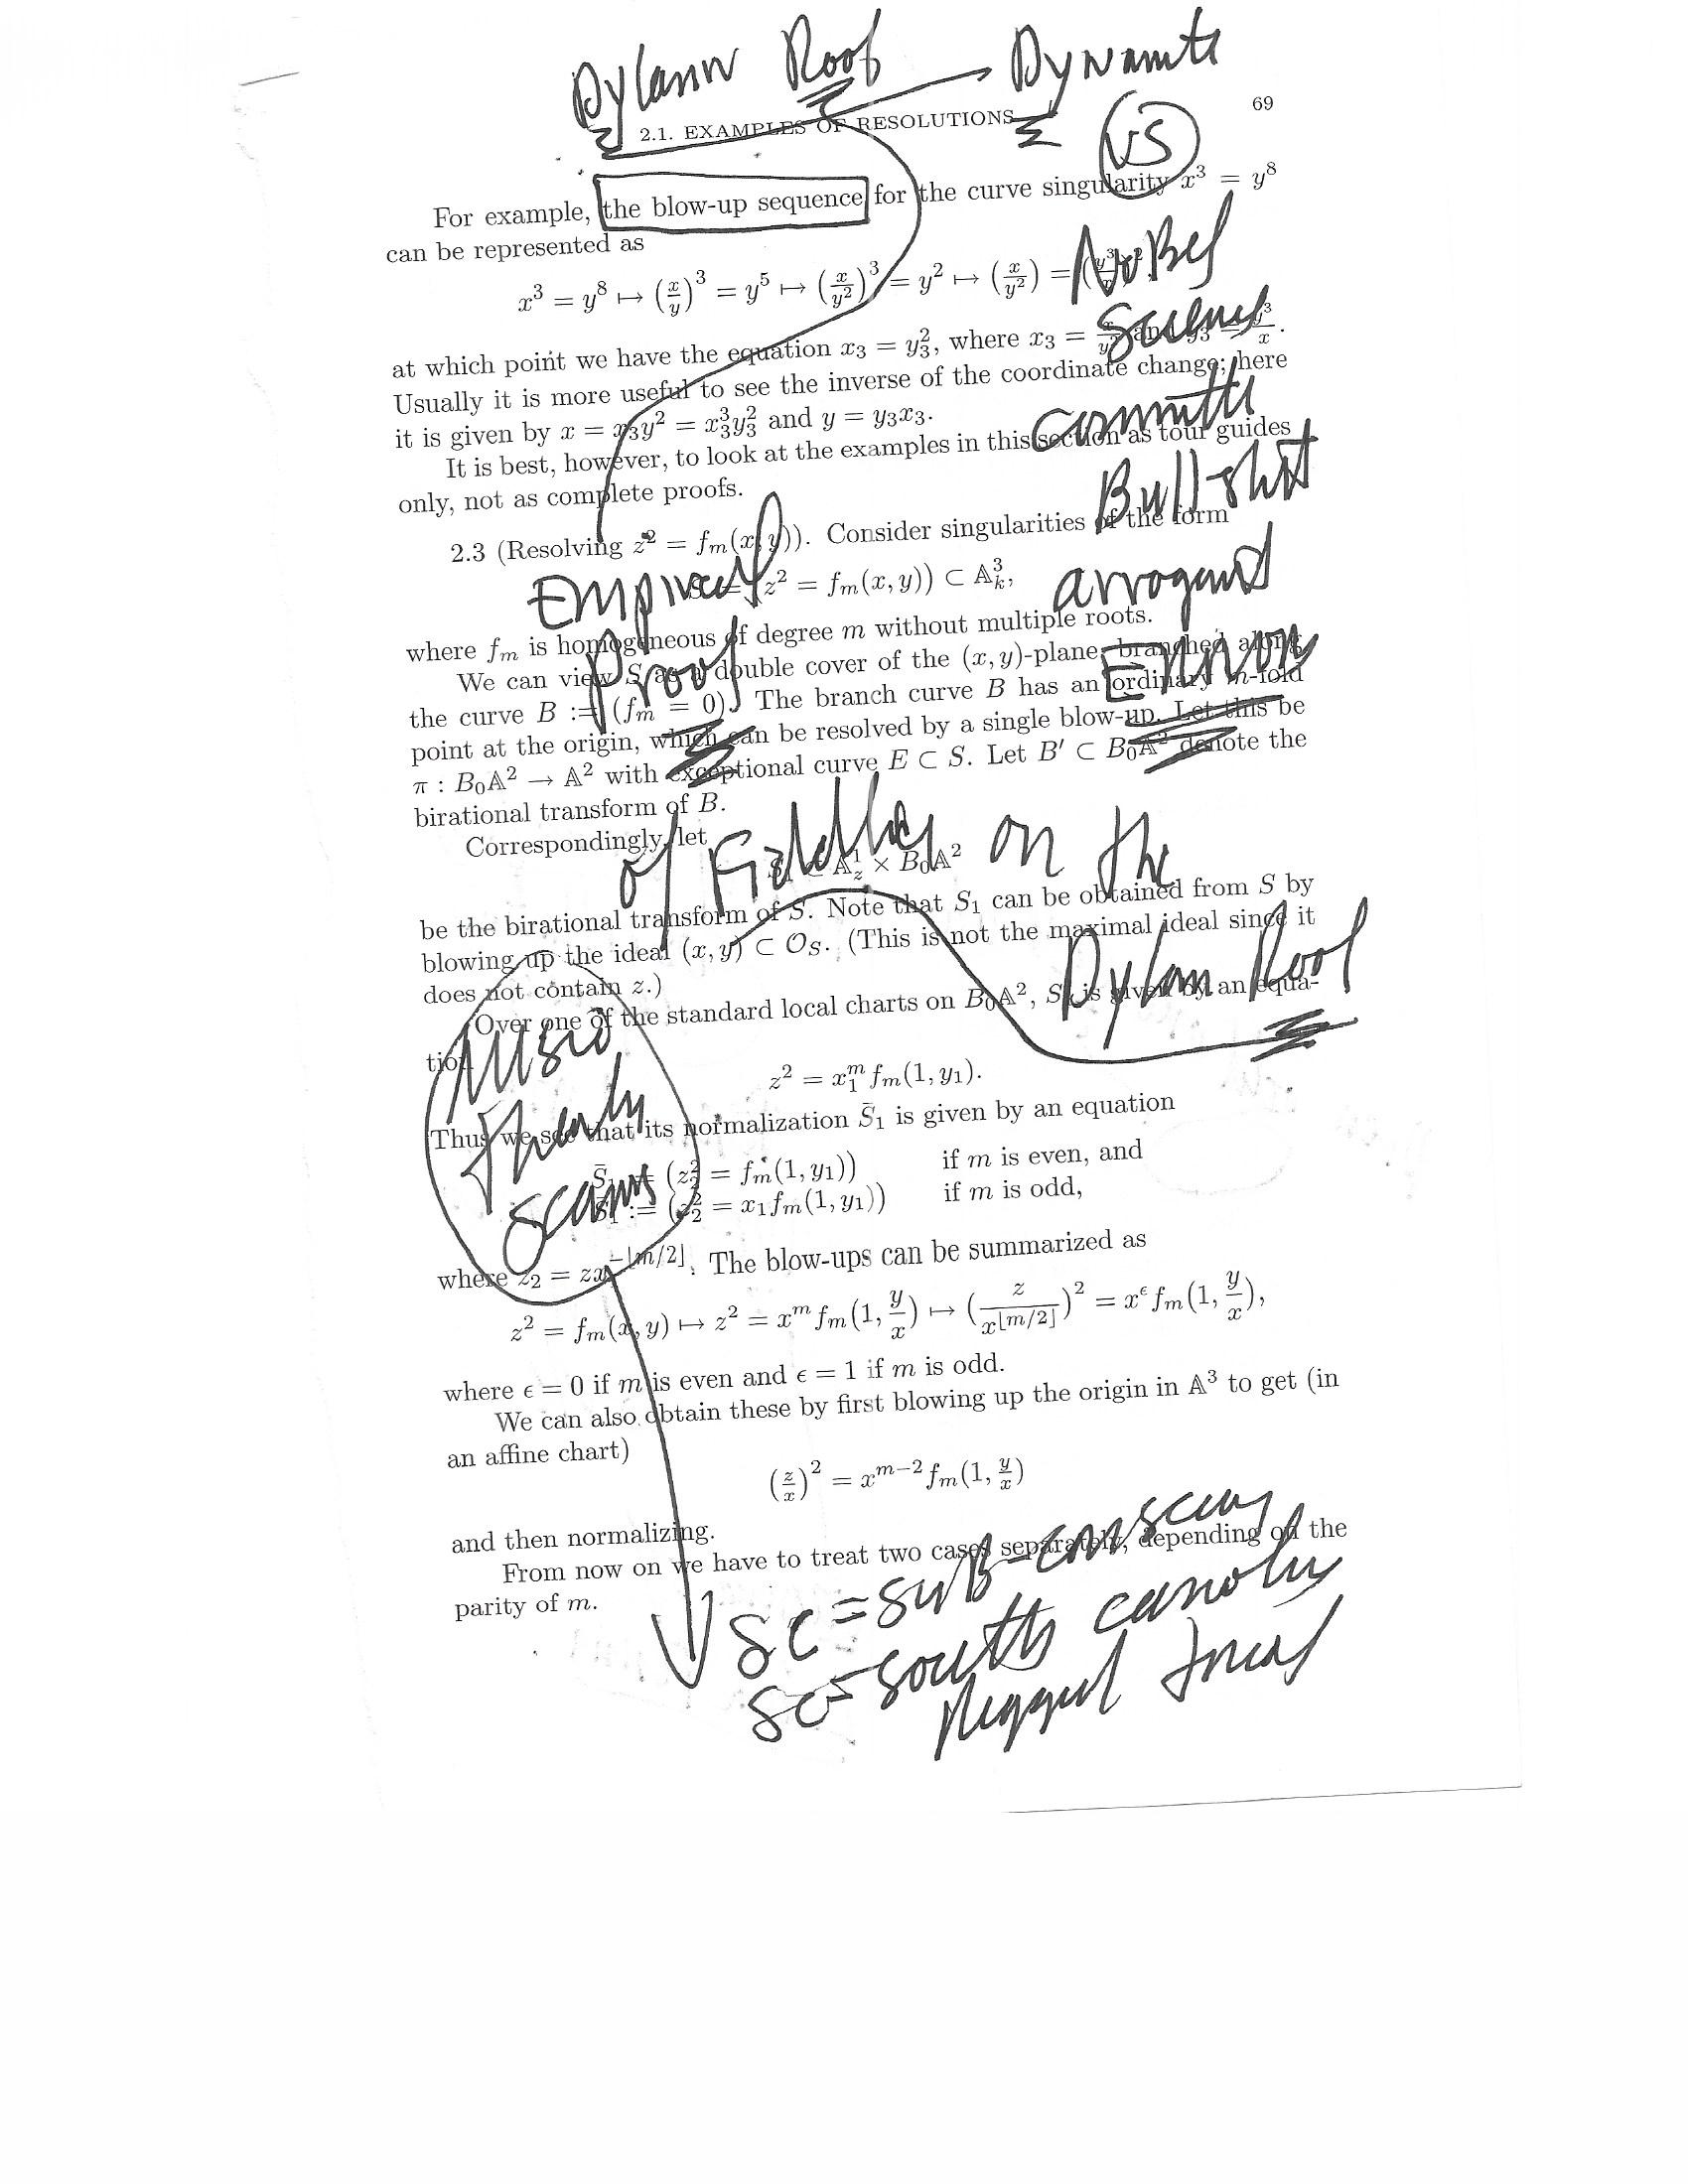 Dylann Roof Dynamite
2.1. EXAMPLES OF RESOLUTIONS 69
VS
For example, the blow-up sequence for the curve singularity x³ = y⁸
can be represented as
x³ = y⁸ ↦ (x/y)³ = y⁵ ↦ (x/y²)³ = y² ↦ (x/y²) =
Nobel
Science
at which point we have the equation x₃ = y₃², where x₃ =
Usually it is more useful to see the inverse of the coordinate change; here
it is given by x = x₃y² = x₃³y₃² and y = y₃x₃.
committe
It is best, however, to look at the examples in this section as tour guides
only, not as complete proofs.
Bullshit
2.3 (Resolving z² = fₘ(x, y)). Consider singularities of the form
z² = fₘ(x, y)) ⊂ 𝔸³ₖ,
Empirical arrogant
where fₘ is homogeneous of degree m without multiple roots.
Proof Error
We can view S as a double cover of the (x, y)-plane, branched along
the curve B := (fₘ = 0). The branch curve B has an ordinary m-fold
point at the origin, which can be resolved by a single blow-up. Let this be
π : B₀𝔸² → 𝔸² with exceptional curve E ⊂ S. Let B′ ⊂ B₀𝔸² denote the
birational transform of B.
Correspondingly, let
of on the
S₁ ⊂ 𝔸¹_z × B₀𝔸²
be the birational transform of S. Note that S₁ can be obtained from S by
blowing up the ideal (x, y) ⊂ 𝒪_S. (This is not the maximal ideal since it
does not contain z.)
Dylan Roof
Over one of the standard local charts on B₀𝔸², S₁ is given by an equa-
tion
Music
z² = x₁ᵐ fₘ(1, y₁).
Thus we see that its normalization S̄₁ is given by an equation
S̄₁ := (z₂² = fₘ(1, y₁)) if m is even, and
S̄₁ := (z₂² = x₁fₘ(1, y₁)) if m is odd,
where z₂ = zx₁^{−⌊m/2⌋}. The blow-ups can be summarized as
z² = fₘ(x, y) ↦ z² = xᵐ fₘ(1, y/x) ↦ (z/x^{⌊m/2⌋})² = x^ϵ fₘ(1, y/x),
where ϵ = 0 if m is even and ϵ = 1 if m is odd.
We can also obtain these by first blowing up the origin in 𝔸³ to get (in
an affine chart)
(z/x)² = x^{m−2} fₘ(1, y/x)
and then normalizing.
From now on we have to treat two cases separately, depending on the
parity of m.
SC = sub-
SC = South